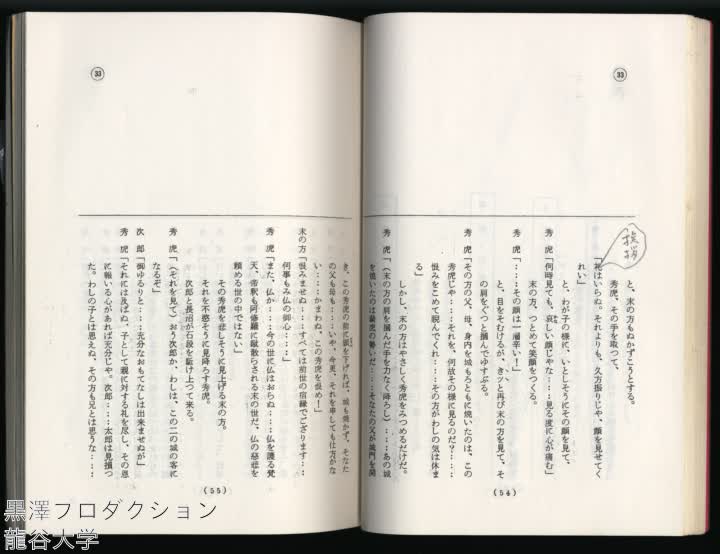 33
と、末の方もぬかずこうとする。
秀虎、その手を取って、
挨拶
「礼はいらぬ。それよりも、久方振りじゃ、顔を見せてく
れい」
と、わが子の様に、いとしそうにその顔を見て、
秀虎「何時見ても、哀しい顔じゃな‥‥見る度に心が痛む」
末の方、つとめて笑顔をつくる。
秀虎「‥‥その顔は一層辛い！」
と、目をそむけるが、きッと再び末の方を見て、そ
の肩をぐっと掴んでゆすぶる。
秀虎「その方の父、母、身内を城もろともに焼いたのは、この
秀虎じゃ‥‥それを、何故その様に見るのだ？‥‥
恨みをこめて睨んでくれ‥‥その方がわしの気は休ま
る」
しかし、末の方はやさしく秀虎をみつめるだけだ。
秀虎「（末の方の肩を掴んだ手を力なく降ろし）‥‥あの城
を焼いたのは秀虎の勢いだ‥‥そなたの父が城門を開
(54)
33
き、この秀虎の前に頭を下げれば、城も焼かず、そなた
の父も母も‥‥いや、今更、それを申しても仕方がな
い‥‥かまわぬ、この秀虎を恨め！」
末の方「恨みませぬ‥‥すべては前世の宿縁でござります‥‥
何事もみ仏の御心‥‥」
秀虎「また、仏か‥‥今の世に仏はおらぬ‥‥仏を護る梵
天、帝釈も阿修羅に蹴散らされる末の世だ、仏の慈悲を
頼める世の中ではない」
その秀虎を悲しそうに見上げる末の方。
それを不愍そうに見降ろす秀虎。
次郎と長沼が石段を駈け上って来る。
秀虎「（それを見て）おう次郎か、わしは、この二の城の客に
なるぞ」
次郎「御ゆるりと‥‥充分なおもてなしは出来ませぬが」
秀虎「それには及ばぬ、子として親に対する礼を尽し、その恩
に報いる心があれば充分じゃ。次郎‥‥太郎は見損つ
た。わしの子とは思えぬ、その方も兄とは思うな‥‥
(55)
黒澤プロダクション
龍谷大学